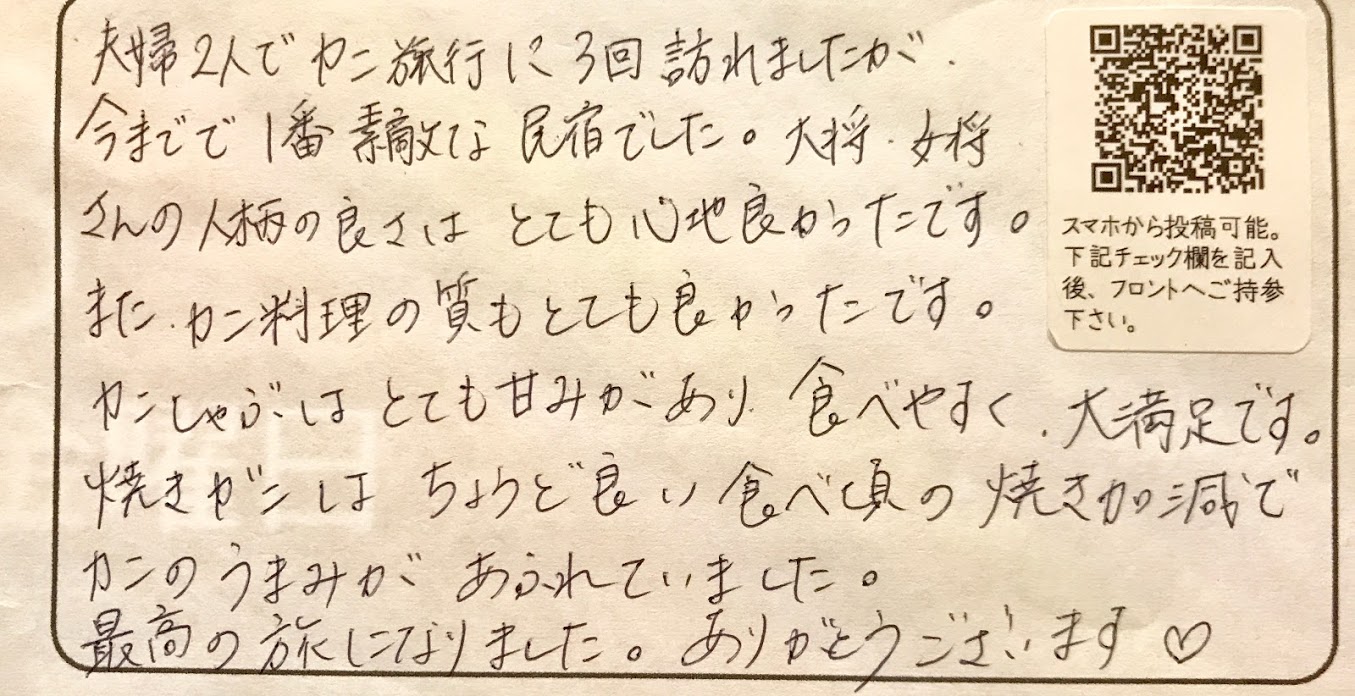 夫婦2人でカニ旅行に3回訪れましたが、
今までで1番素敵な民宿でした。大将、女将
さんの人柄の良さはとても心地良かったです。
また、カニ料理の質もとても良かったです。
カニしゃぶはとても甘みがあり、食べやすく、大満足です。
焼きガニはちょうど良い食べ頃の焼き加減で
カニのうまみがあふれていました。
最高の旅になりました。ありがとうございます♡
スマホから投稿可能。
下記チェック欄を記入
後、フロントへご持参
下さい。